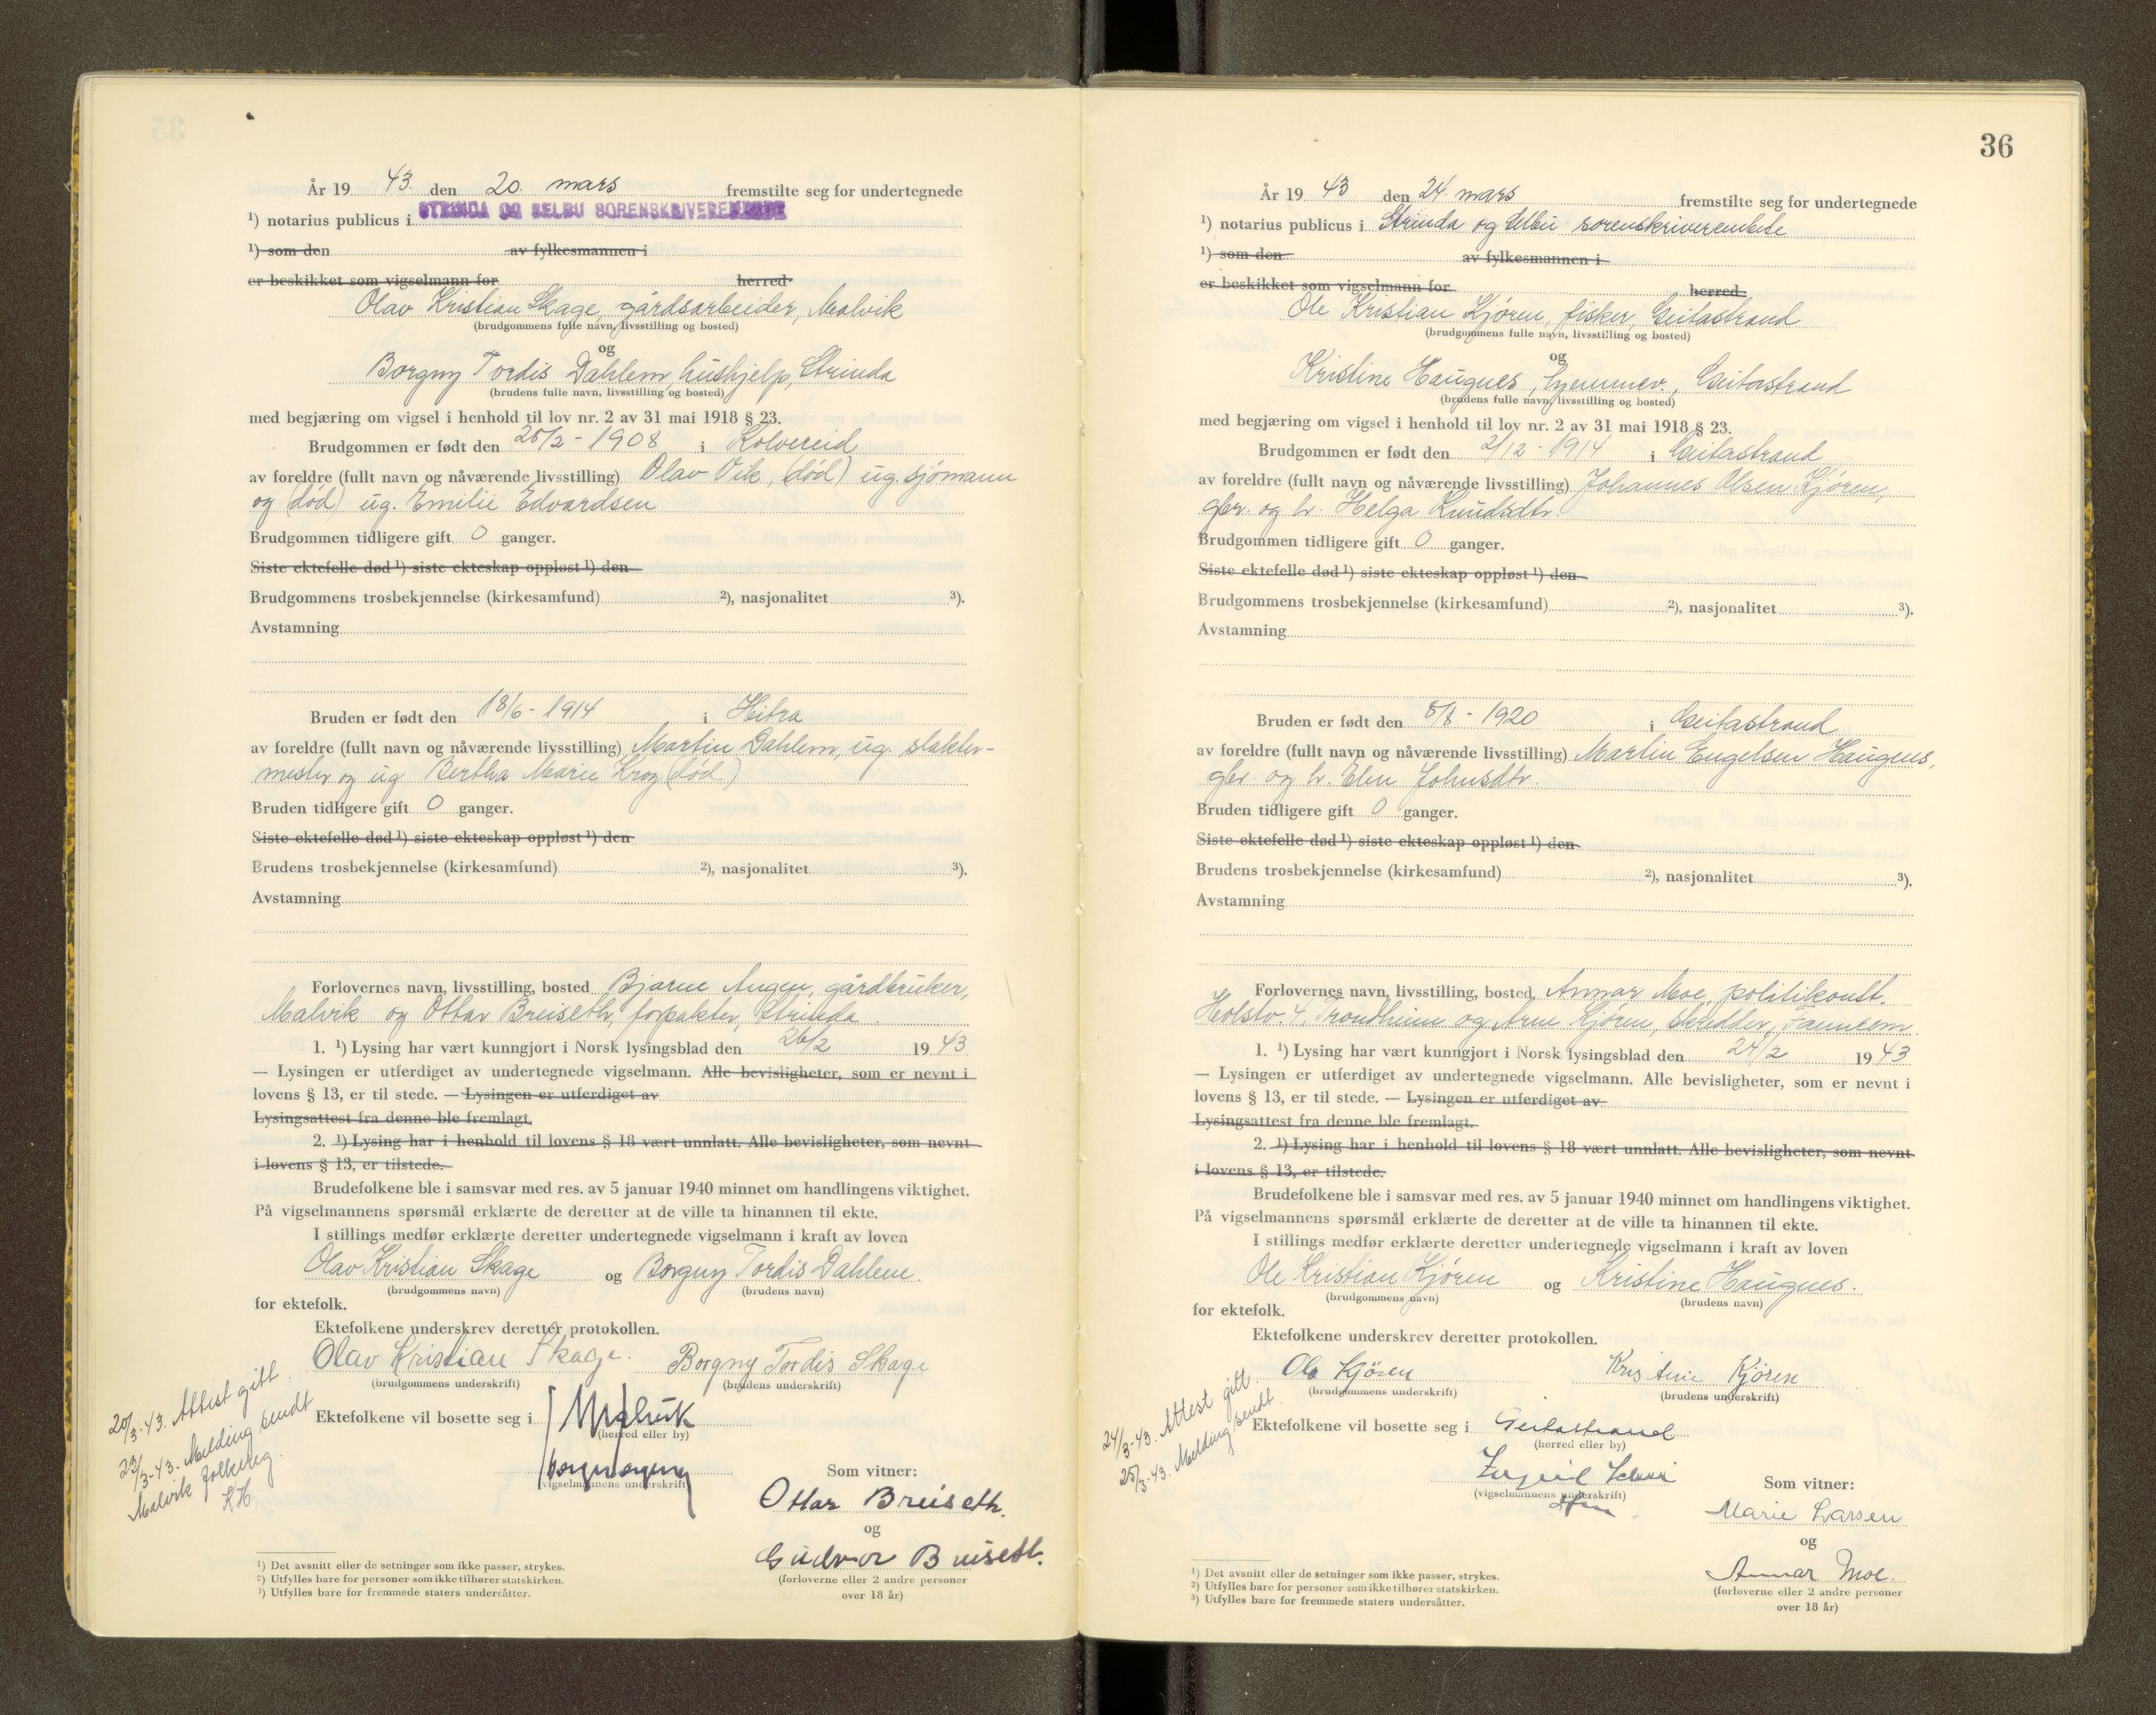 År 19 43. den 20. mars fremstilte seg for undertegnede
¹) notarius publicus i STRINDA OG SELBU SORENSKRIVEREMBEDE
¹) som den av fylkesmannen i
er beskikket som vigselmann for herred
Olav Kristian Skage, gårdsarbeider, Malvik
(brudgommens fulle navn, livsstilling og bosted)
og
Borgny Tordis Dahlem, hushjelp, Strinda
(brudens fulle navn, livsstilling og bosted)
med begjæring om vigsel i henhold til lov nr. 2 av 31 mai 1918 § 23.
Brudgommen er født den 25/2 - 1908 i Kolvereid
av foreldre (fullt navn og nåværende livsstilling) Olav Vik, (død) ug. sjømann
og (død) ug. Emilie Edvardsen
Brudgommen tidligere gift 0 ganger.
Siste ektefelle død ¹) siste ekteskap oppløst ¹) den
Brudgommens trosbekjennelse (kirkesamfund) ²), nasjonalitet ³).
Avstamning
Bruden er født den 18/6 - 1914 i Hitra
av foreldre (fullt navn og nåværende livsstilling) Martin Dahlem, ug. slakter-
mester og ug Bertha Marie Krog (død)
Bruden tidligere gift 0 ganger.
Siste ektefelle død ¹) siste ekteskap oppløst ¹) den
Brudens trosbekjennelse (kirkesamfund) ²), nasjonalitet ³).
Avstamning
Forlovernes navn, livsstilling, bosted Bjarne Augen, gårdbruker,
Malvik og Ottar Breiseth, forpakter, Strinda.
1. ¹) Lysing har vært kunngjort i Norsk lysingsblad den 26/2 19 43
— Lysingen er utferdiget av undertegnede vigselmann. Alle bevisligheter, som er nevnt i
lovens § 13, er til stede. — Lysingen er utferdiget av
Lysingsattest fra denne ble fremlagt.
2. ¹) Lysing har i henhold til lovens § 18 vært unnlatt. Alle bevisligheter, som nevnt
i lovens § 13, er tilstede.
Brudefolkene ble i samsvar med res. av 5 januar 1940 minnet om handlingens viktighet.
På vigselmannens spørsmål erklærte de deretter at de ville ta hinannen til ekte.
I stillings medfør erklærte deretter undertegnede vigselmann i kraft av loven
Olav Kristian Skage og Borgny Tordis Dahlem.
(brudgommens navn) (brudens navn)
for ektefolk.
Ektefolkene underskrev deretter protokollen.
Olav Kristian Skage. Borgny Tordis Skage
(brudgommens underskrift) (brudens underskrift)
Ektefolkene vil bosette seg i Malvik
(herred eller by)
(vigselmannens underskrift)
20/3-43. Attest gitt.
23/3-43. Melding sendt
Malvik folkereg.
K.H.
Som vitner:
Ottar Breiseth.
og
Gudvor Breiseth.
(forloverne eller 2 andre personer
over 18 år)
¹) Det avsnitt eller de setninger som ikke passer, strykes.
²) Utfylles bare for personer som ikke tilhører statskirken.
³) Utfylles bare for fremmede staters undersåtter.
36
År 19 43 den 24. mars fremstilte seg for undertegnede
¹) notarius publicus i Strinda og Selbu sorenskriverembete
¹) som den av fylkesmannen i
er beskikket som vigselmann for herred
Ole Kristian Kjøren, fisker, Geitastrand
(brudgommens fulle navn, livsstilling og bosted)
og
Kristine Haugnes, hjemmev., Geitastrand
(brudens fulle navn, livsstilling og bosted)
med begjæring om vigsel i henhold til lov nr. 2 av 31 mai 1918 § 23.
Brudgommen er født den 2/12 - 1914 i Geitastrand
av foreldre (fullt navn og nåværende livsstilling) Johannes Olsen Kjøren,
gbr. og h. Helga Knudsdtr.
Brudgommen tidligere gift 0 ganger.
Siste ektefelle død ¹) siste ekteskap oppløst ¹) den
Brudgommens trosbekjennelse (kirkesamfund) ²), nasjonalitet ³).
Avstamning
Bruden er født den 8/8 - 1920 i Geitastrand
av foreldre (fullt navn og nåværende livsstilling) Martin Engelsen Haugnes,
gbr. og h. Elen Johnsdtr.
Bruden tidligere gift 0 ganger.
Siste ektefelle død ¹) siste ekteskap oppløst ¹) den
Brudens trosbekjennelse (kirkesamfund) ²), nasjonalitet ³).
Avstamning
Forlovernes navn, livsstilling, bosted Annar Moe, politikonst.
Holstv. 4, Trondheim og Arne Kjøren, skredder,
1. ¹) Lysing har vært kunngjort i Norsk lysingsblad den 24/2 19 43
— Lysingen er utferdiget av undertegnede vigselmann. Alle bevisligheter, som er nevnt i
lovens § 13, er til stede. — Lysingen er utferdiget av
Lysingsattest fra denne ble fremlagt.
2. ¹) Lysing har i henhold til lovens § 18 vært unnlatt. Alle bevisligheter, som nevnt
i lovens § 13, er tilstede.
Brudefolkene ble i samsvar med res. av 5 januar 1940 minnet om handlingens viktighet.
På vigselmannens spørsmål erklærte de deretter at de ville ta hinannen til ekte.
I stillings medfør erklærte deretter undertegnede vigselmann i kraft av loven
Ole Kristian Kjøren og Kristine Haugnes.
(brudgommens navn) (brudens navn)
for ektefolk.
Ektefolkene underskrev deretter protokollen.
Ole Kjøren Kristine Kjøren
(brudgommens underskrift) (brudens underskrift)
Ektefolkene vil bosette seg i Geitastrand
(herred eller by)
(vigselmannens underskrift)
24/3-43. Attest gitt.
25/3-43. Melding sendt.
Som vitner:
Marie Larsen
og
Annar Moe.
(forloverne eller 2 andre personer
over 18 år)
¹) Det avsnitt eller de setninger som ikke passer, strykes.
²) Utfylles bare for personer som ikke tilhører statskirken.
³) Utfylles bare for fremmede staters undersåtter.